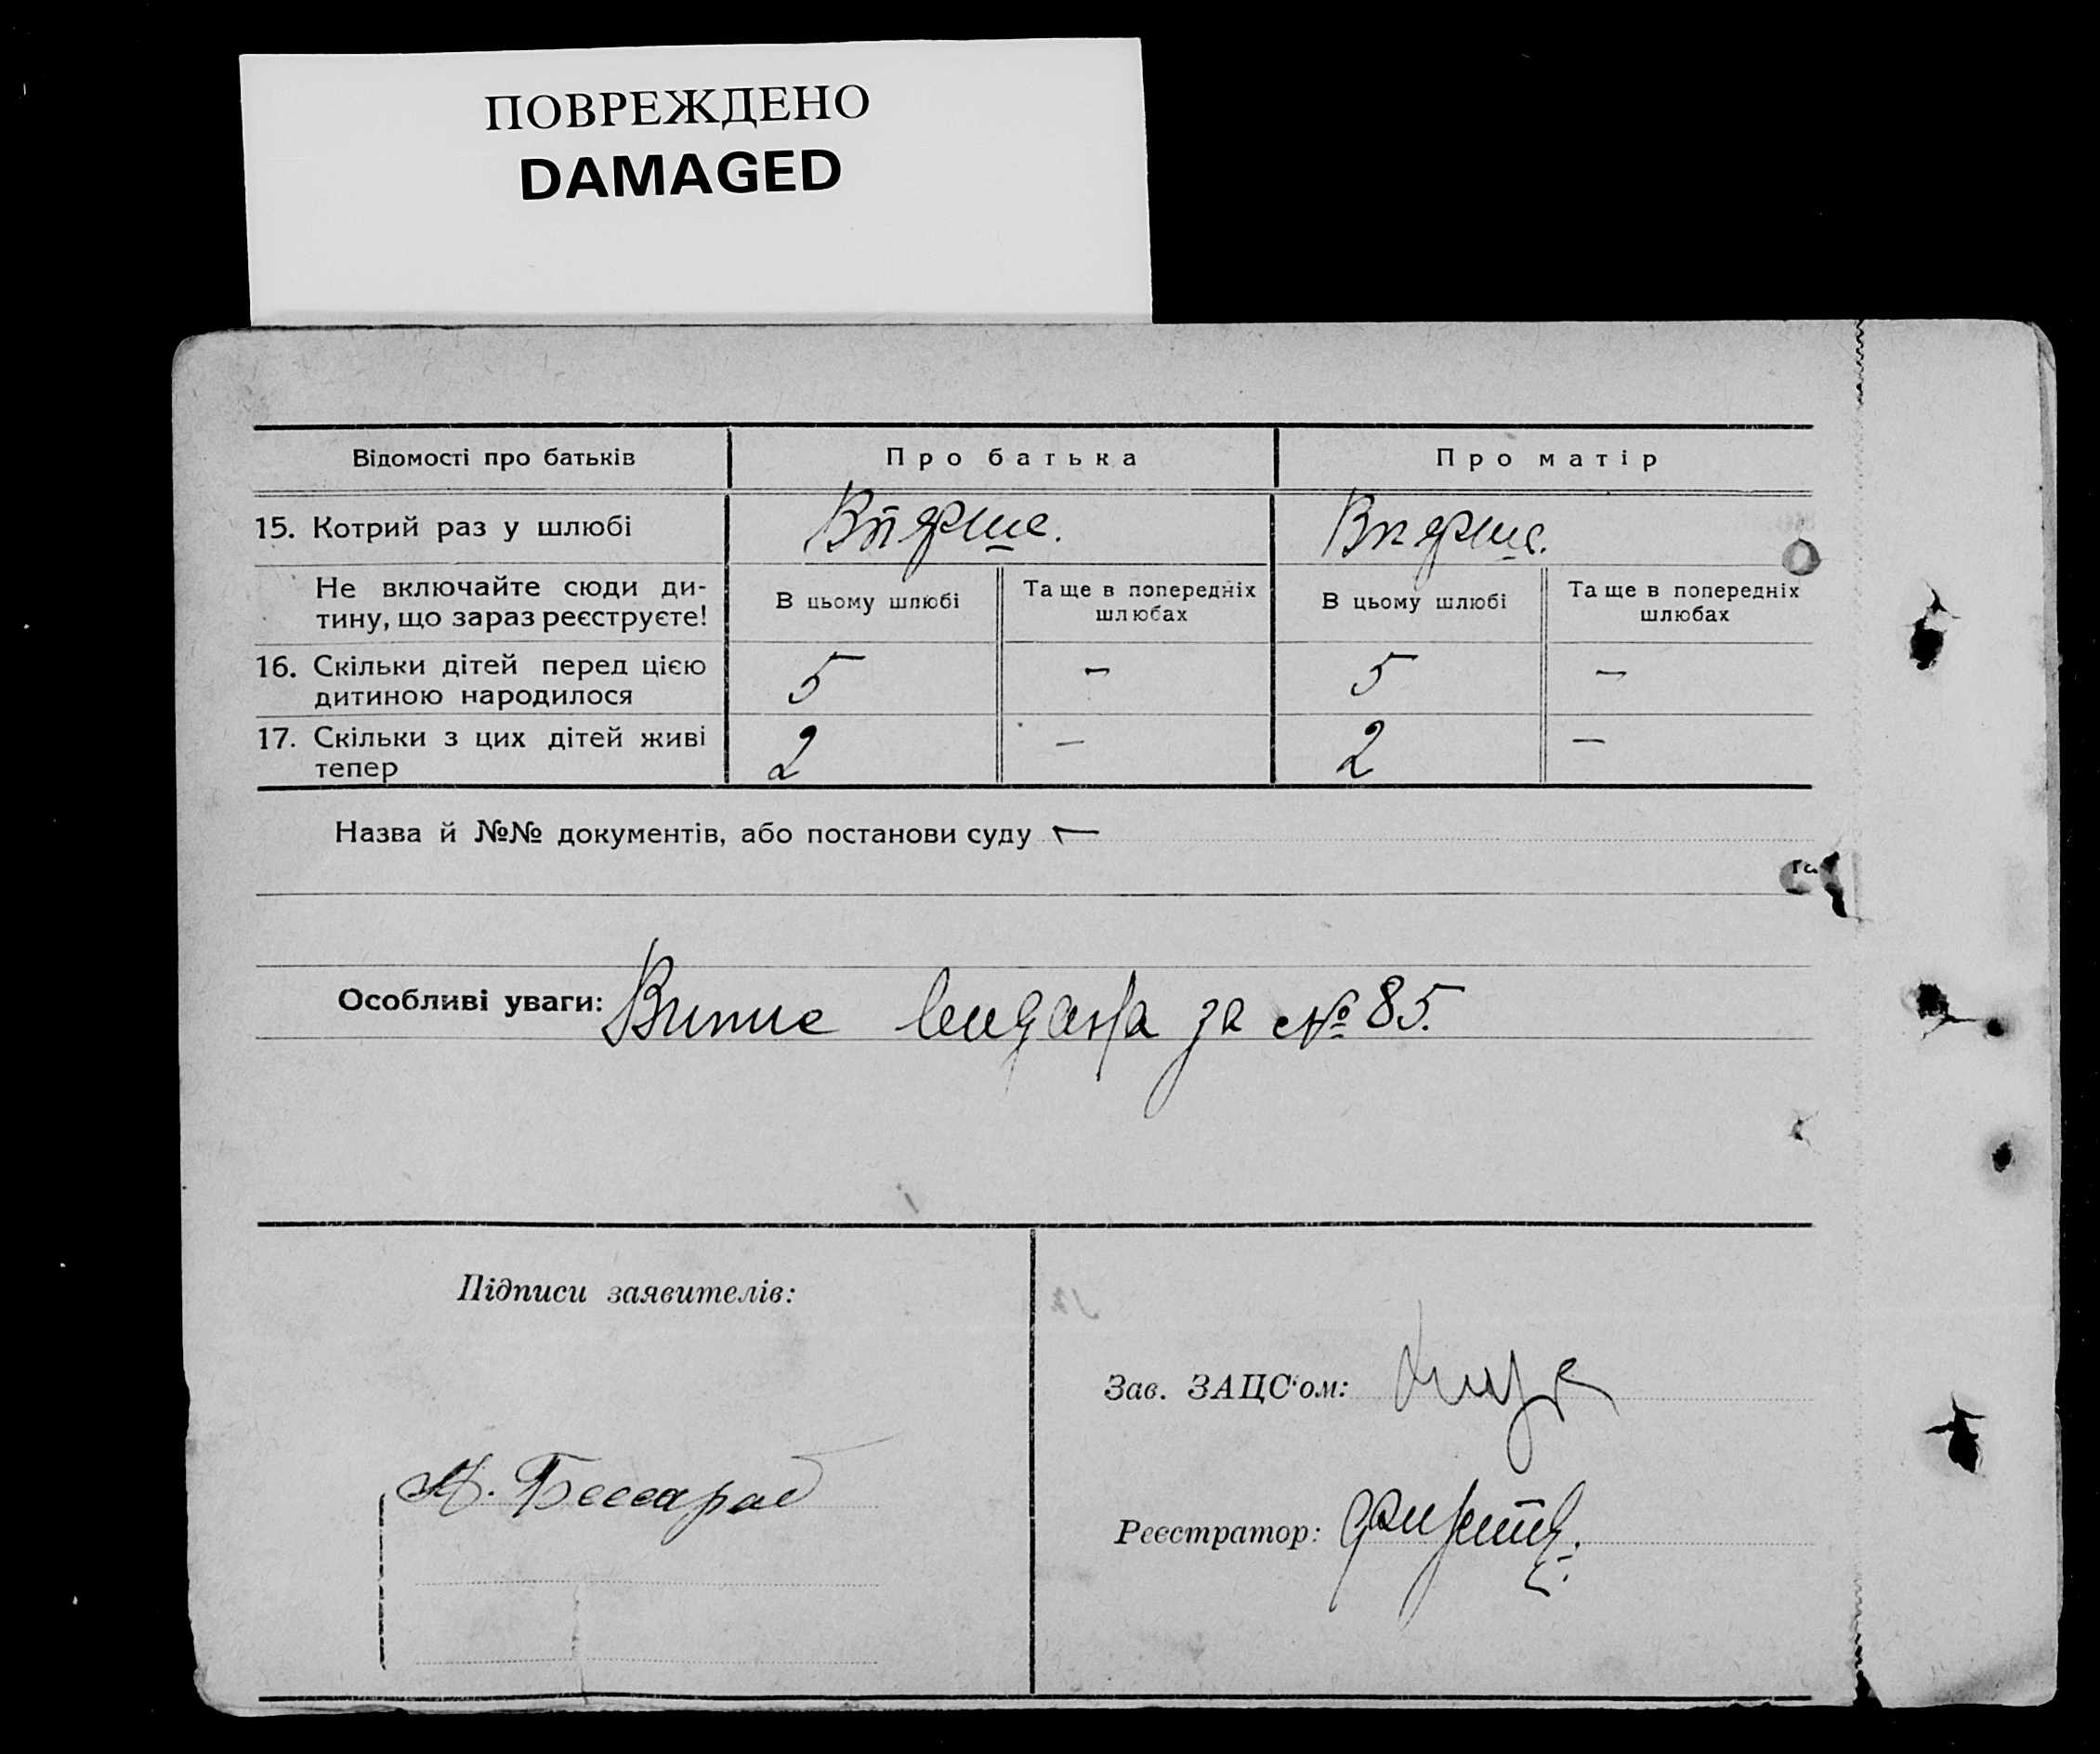 ПОВРЕЖДЕНО
DAMAGED
Відомості про батьків
Про батька
Про матір
15. Котрий раз у шлюбі
Вперше.
Вперше.
Не включайте сюди ди-
тину, що зараз реєструєте!
В цьому шлюбі
Та ще в попередніх
шлюбах
В цьому шлюбі
Та ще в попередніх
шлюбах
16. Скільки дітей перед цією
дитиною народилося
5
—
5
—
17. Скільки з цих дітей живі
тепер
2
—
2
—
Назва й №№ документів, або постанови суду —
Особливі уваги: Випис видана за № 85.
Підписи заявителів:
Зав. ЗАЦС'ом:
А. Бессараб
Реєстратор: